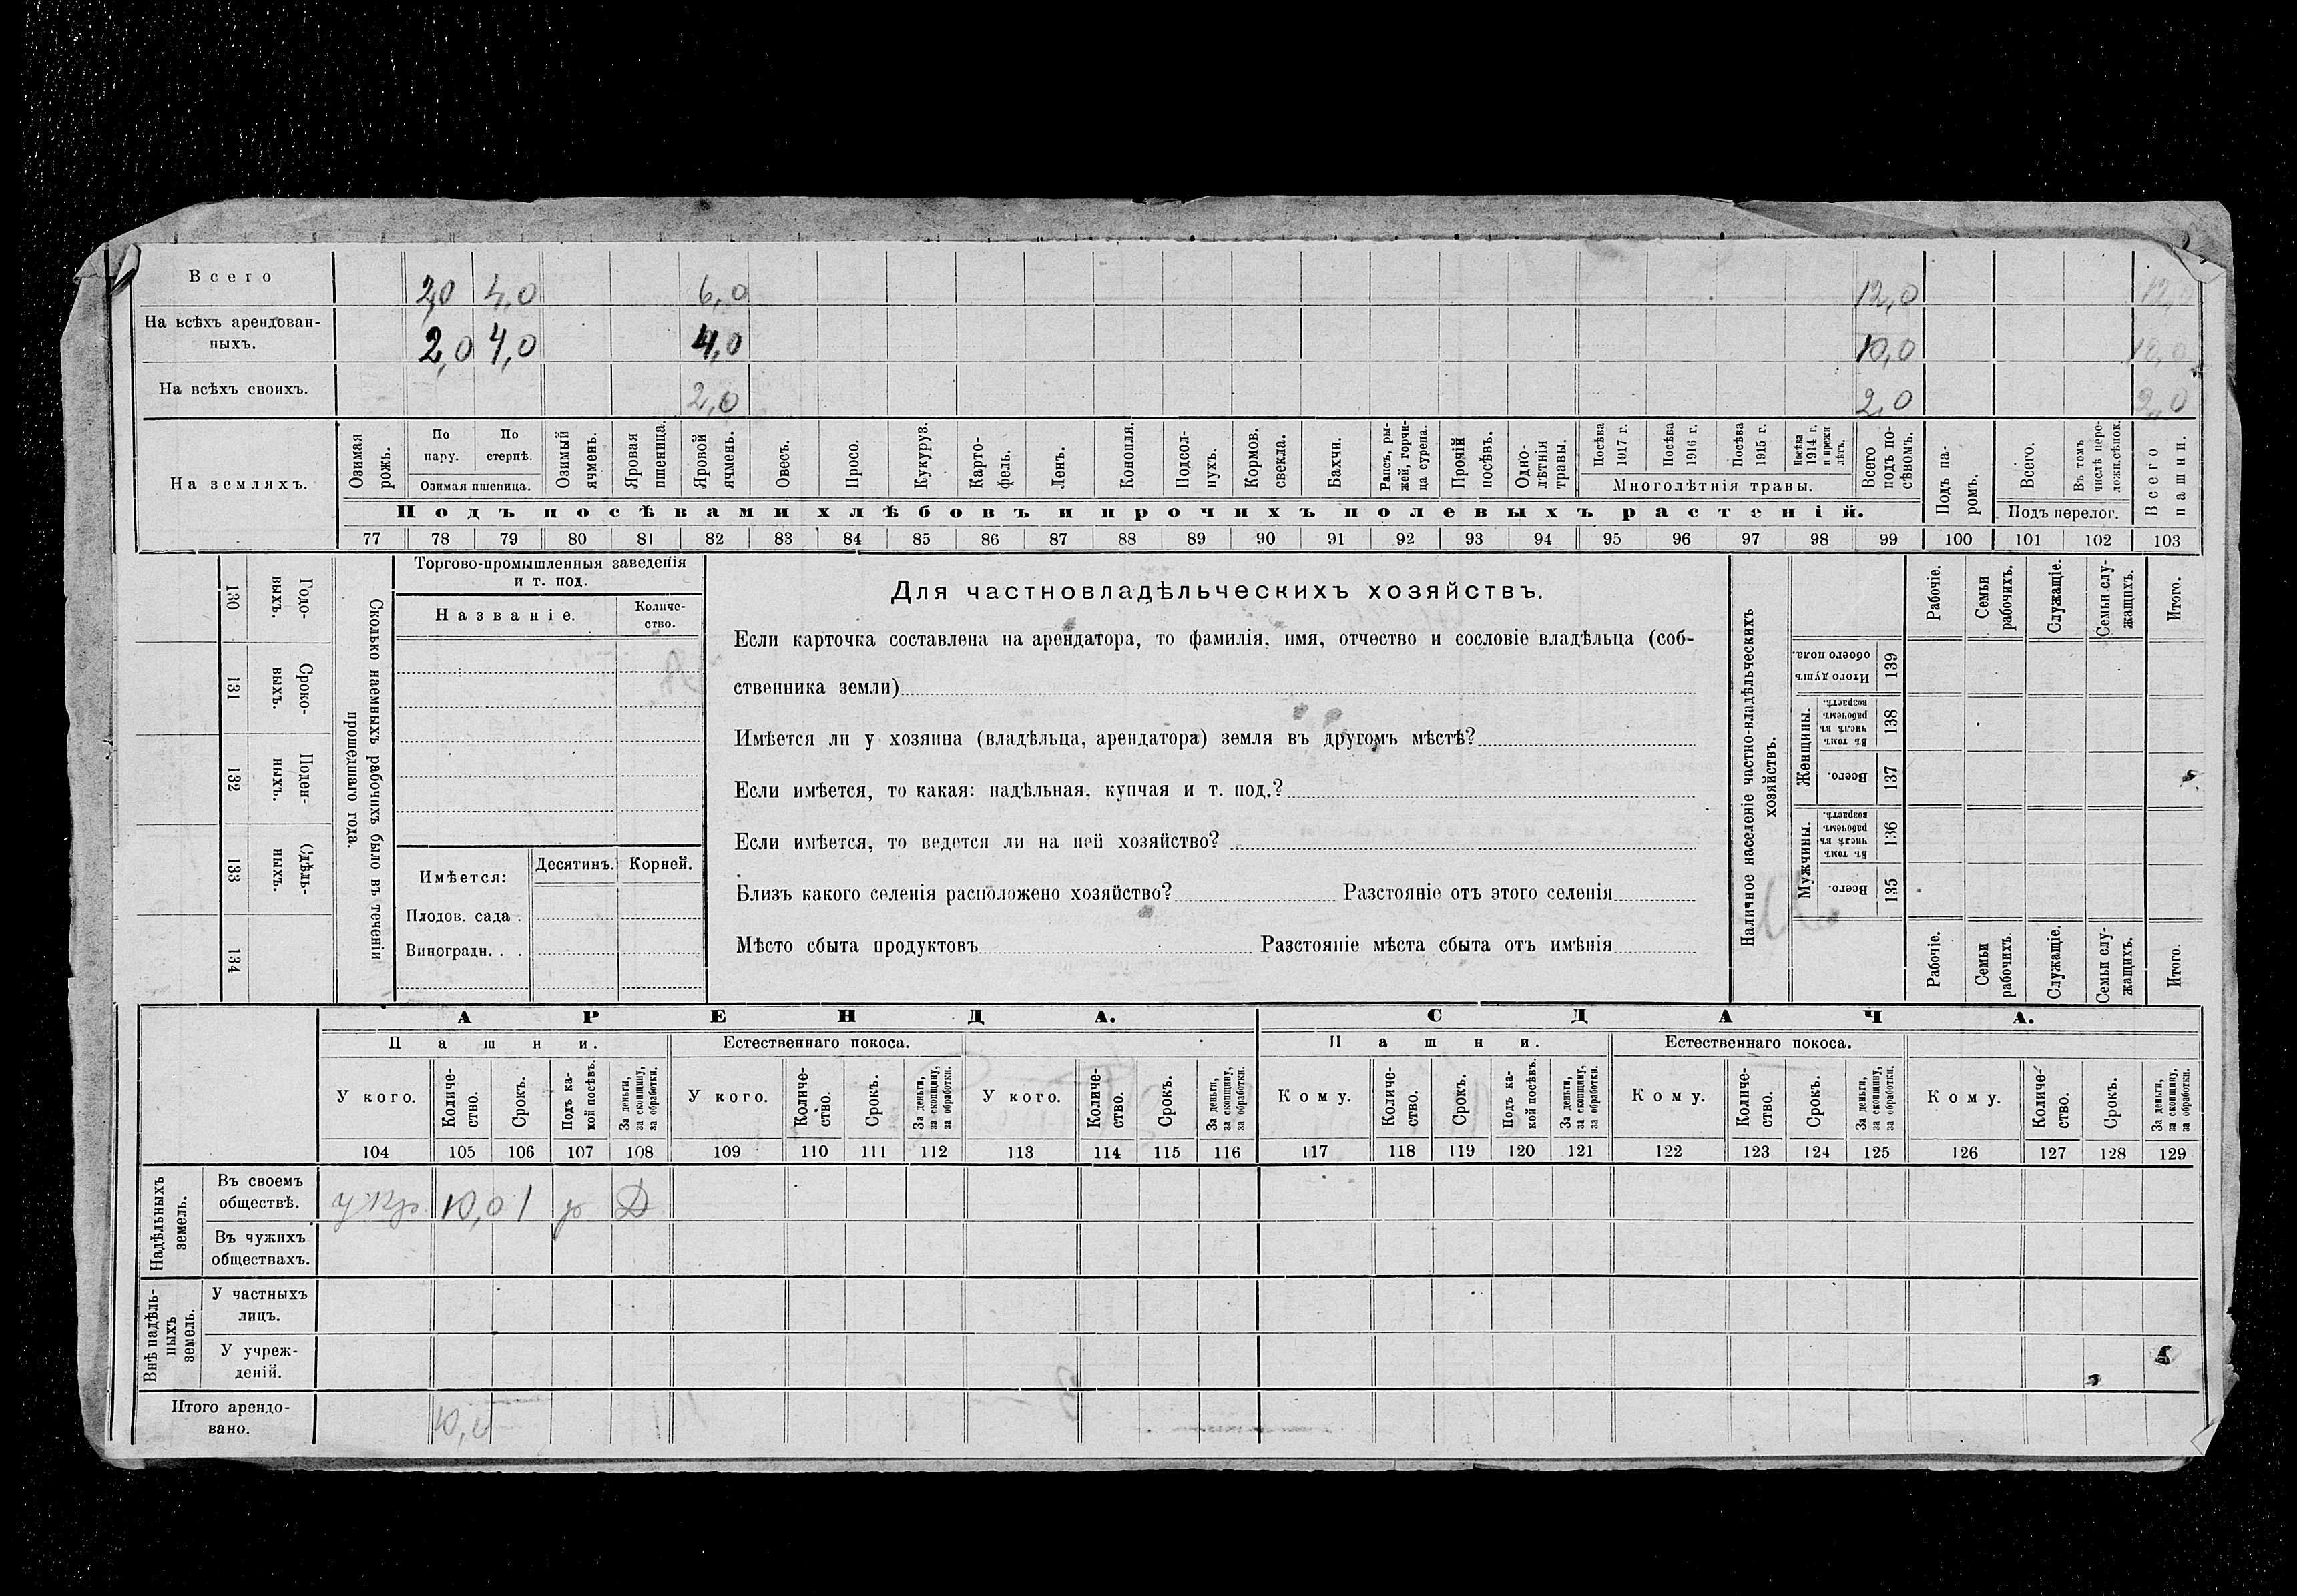 Всего 2,0 4,0 6,0 12,0 12,0
На всѣхъ арендован-
ныхъ. 2,0 4,0 4,0 10,0 10,0
На всѣхъ своихъ. 2,0 2,0 2,0
На земляхъ.
Озимая рожь.
По пару.
По стернѣ.
Озимая пшеница.
Озимый ячмень.
Яровая пшеница.
Яровой ячмень.
Овесъ.
Просо.
Кукуруз.
Карто-
фель.
Ленъ.
Конопля.
Подсол-
нухъ.
Кормов. свекла.
Бахчи.
Рапсъ, ры-
жей, горчи-
ца сурепа.
Прочій посѣвъ.
Одно-
лѣтнія травы.
Посѣва 1917 г.
Посѣва 1916 г.
Посѣва 1915 г.
Посѣва 1914 г. и прежн лѣтъ.
Многолѣтнія травы.
Всего подъ по-
сѣвомъ.
Подъ посѣвами хлѣбовъ и прочихъ полевыхъ растеній.
Подъ па-
ромъ.
Всего.
Въ томъ числѣ пере-
ложн.сѣнок.
Подъ перелог.
Всего пашни.
77 78 79 80 81 82 83 84 85 86 87 88 89 90 91 92 93 94 95 96 97 98 99 100 101 102 103
130 Годо-
выхъ.
131 Сроко-
выхъ.
132 Поден-
ныхъ.
133 Сдѣль-
ныхъ.
134
Сколько наемныхъ рабочихъ было въ теченіи
прошедшаго года.
Торгово-промышленныя заведенія
и т. под.
Названіе.
Количе-
ство.
Имѣется: Десятинъ. Корней.
Плодов. сада .
Виноградн. . .
Для частновладѣльческихъ хозяйствъ.
Если карточка составлена на арендатора, то фамилія, имя, отчество и сословіе владѣльца (соб-
ственника земли)
Имѣется ли у хозяина (владѣльца, арендатора) земля въ другомъ мѣстѣ?
Если имѣется, то какая: надѣльная, купчая и т. под.?
Если имѣется, то ведется ли на ней хозяйство?
Близъ какого селенія расположено хозяйство? Разстояніе отъ этого селенія
Мѣсто сбыта продуктовъ Разстояніе мѣста сбыта отъ имѣнія
Наличное населеніе частно-владѣльческихъ
хозяйствъ.
Рабочіе.
Семьи рабочихъ.
Служащіе.
Семьи слу-
жащихъ.
Итого.
Итого душъ обоего пола. 139
Женщины.
Въ томъ числѣ въ рабочемъ возрастѣ. 138
Всего. 137
Мужчины.
Въ томъ числѣ въ рабочемъ возрастѣ. 136
Всего. 135
Рабочіе.
Семьи рабочихъ.
Служащіе.
Семьи слу-
жащихъ.
Итого.
АРЕНДА. СДАЧА.
Пашни. Естественнаго покоса. Пашни. Естественнаго покоса.
У кого.
Количе-
ство.
Срокъ.
Подъ ка-
кой посѣвъ.
За деньги, за скопщину, за обработки.
У кого.
Количе-
ство.
Срокъ.
За деньги, за скопщину, за обработки.
У кого.
Количе-
ство.
Срокъ.
За деньги, за скопщину, за обработки.
Кому.
Количе-
ство.
Срокъ.
Подъ ка-
кой посѣвъ.
За деньги, за скопщину, за обработки.
Кому.
Количе-
ство.
Срокъ.
За деньги, за скопщину, за обработки.
Кому.
Количе-
ство.
Срокъ.
За деньги, за скопщину, за обработки.
104 105 106 107 108 109 110 111 112 113 114 115 116 117 118 119 120 121 122 123 124 125 126 127 128 129
Надѣльныхъ земель.
Въ своемъ
обществѣ. 10,0 1 Д
Въ чужихъ
обществахъ.
Внѣ надѣль-
ныхъ земель.
У частныхъ
лицъ.
У учреж-
деній.
Итого арендо-
вано. 10,0